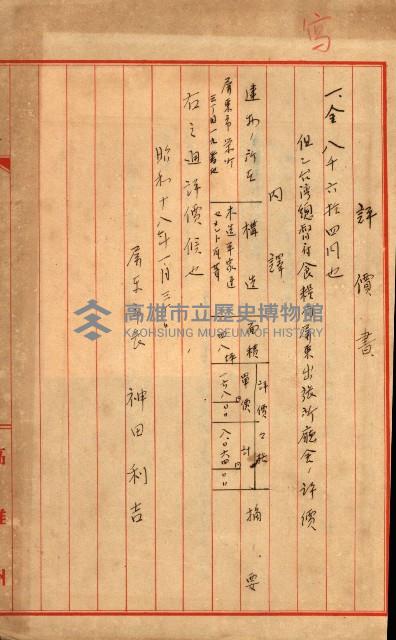 寫
評價書
一、金八千六拾四円也
但シ台湾總督府食糧局屏東出張所廳舍ノ評價
內譯
建物ノ所在
構造
面積
評價
單價
計
摘要
屏東市榮町三丁目一九番地
木造平家建
四八坪
一六八〇〇
八、〇六四〇〇
右之通評價候也
昭和十八年一月三
屏東
神田利吉
高雄州
高雄市立歷史博物館
KAOHSIUNG MUSEUM OF HISTORY